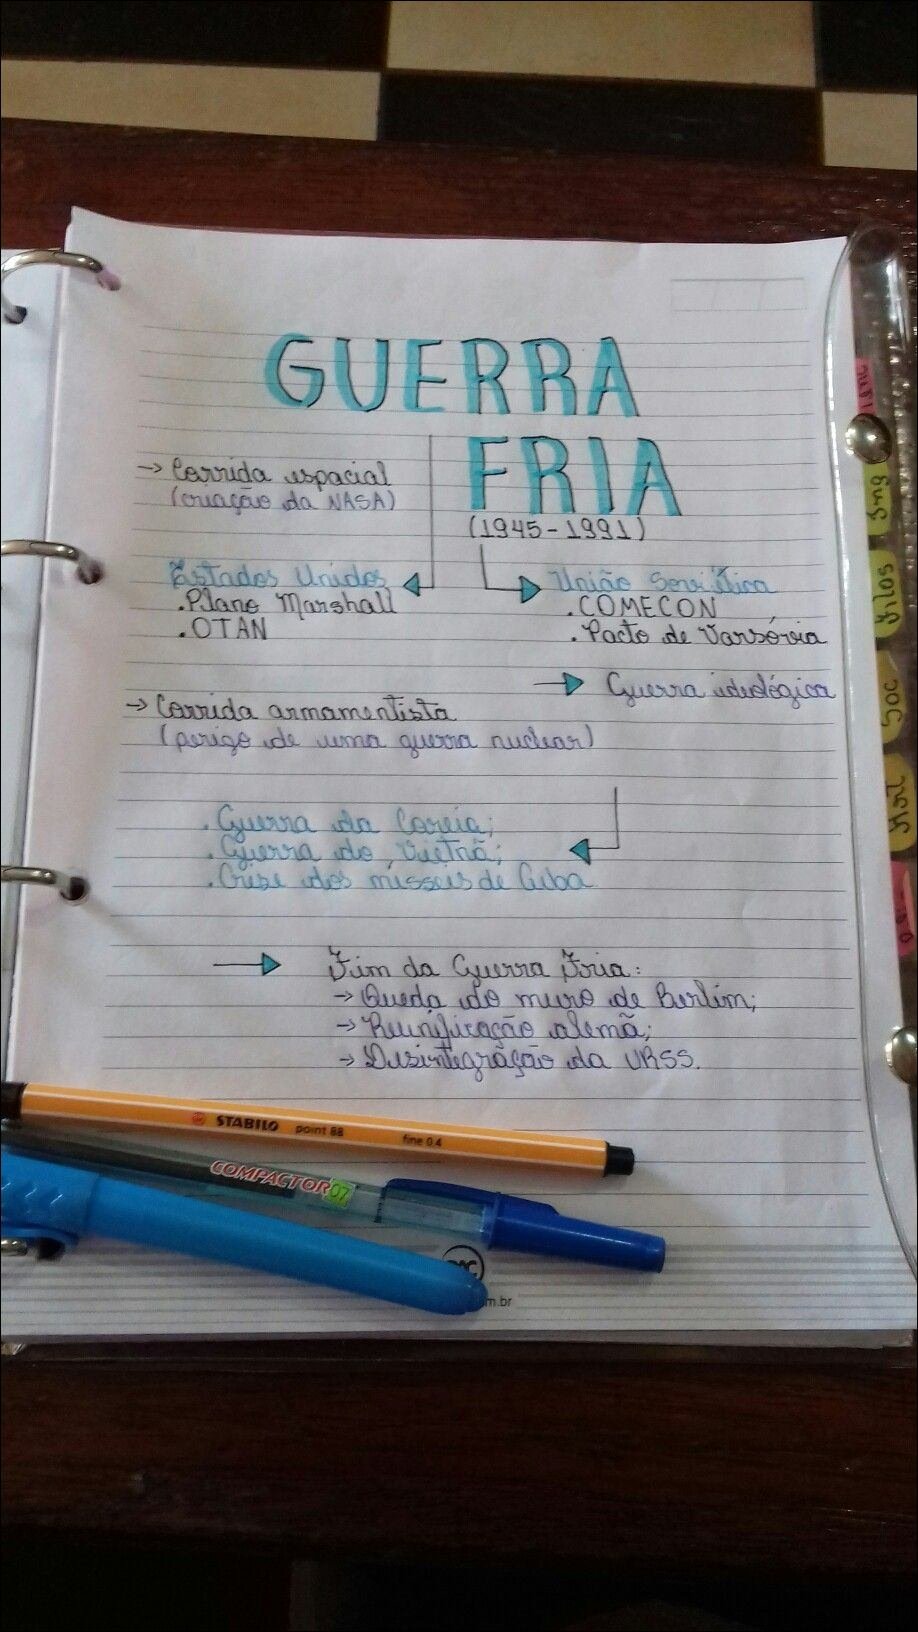 GUERRA
FRIA
(1945-1991)
→ Corrida espacial
(criação da NASA)
Estados Unidos
.Plano Marshall
.OTAN
União Soviética
.COMECON
.Pacto de Varsóvia
→ Guerra ideológica
→ Corrida armamentista
(perigo de uma guerra nuclear)
.Guerra da Coreia;
.Guerra do Vietnã;
.Crise dos mísseis de Cuba
→ Fim da Guerra Fria:
→ Queda do muro de Berlim;
→ Reunificação alemã;
→ Desintegração da URSS.
STABILO point 88 fine 0.4
COMPACTOR 07
m.br
Ing
Filos
Soc
Hist